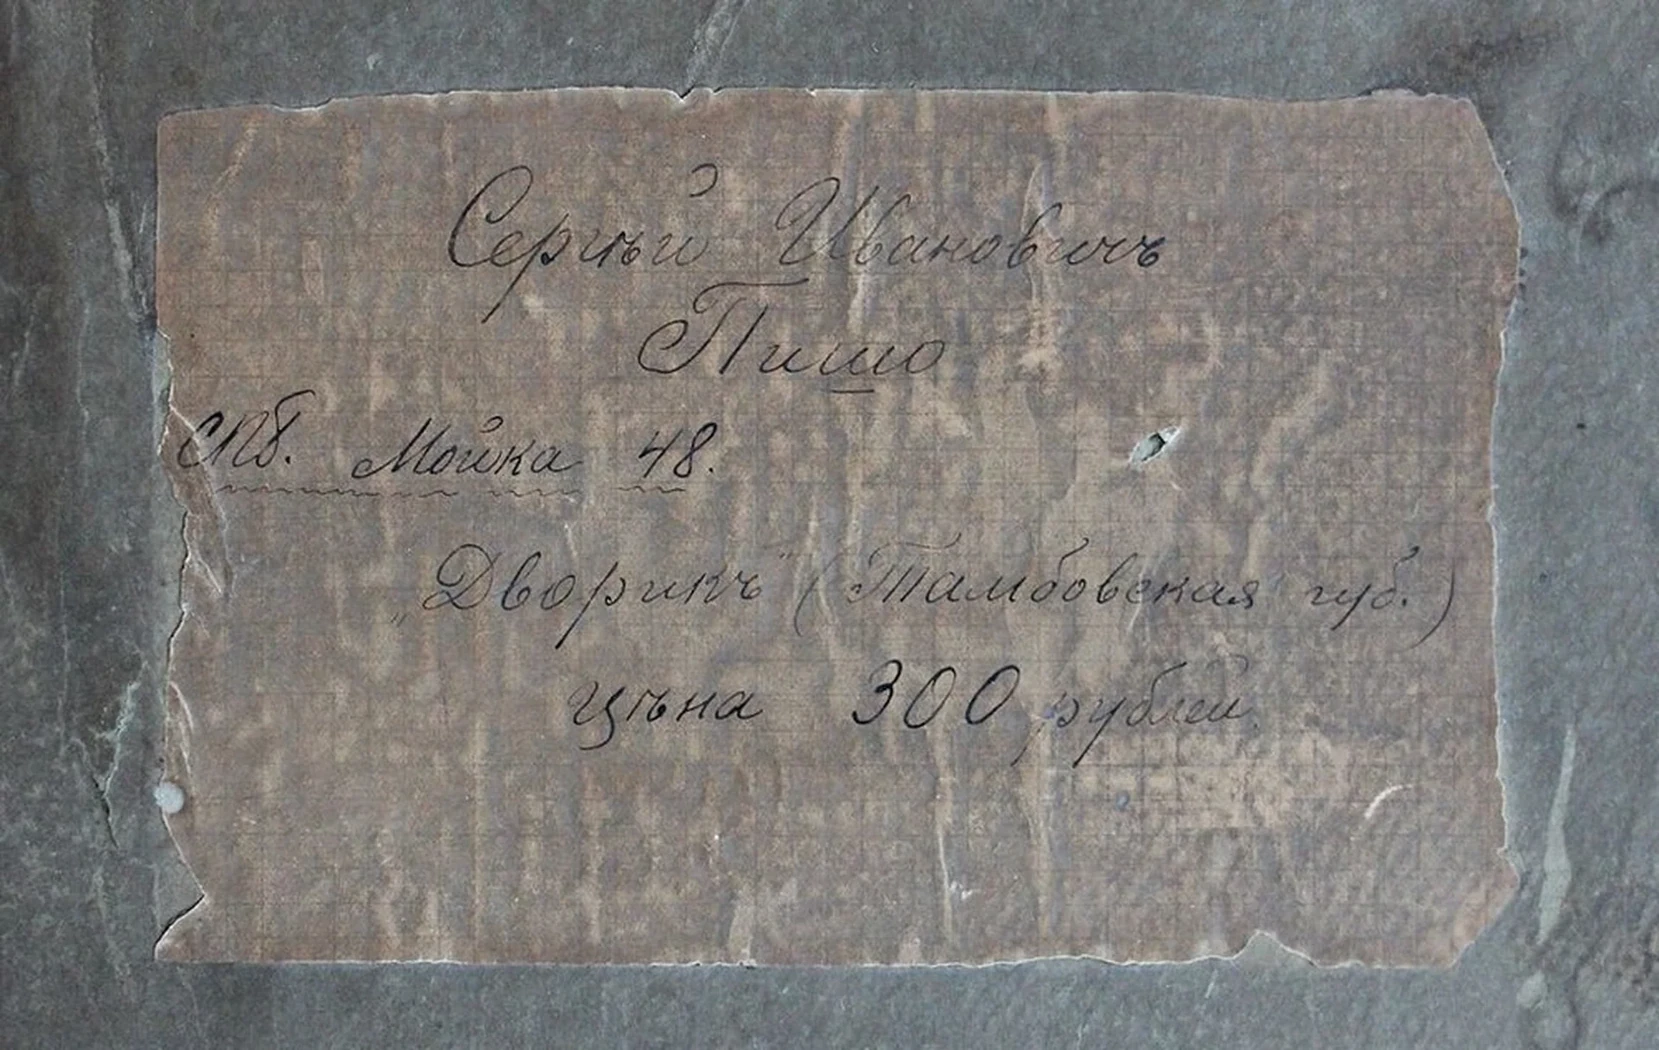 Сергѣй Ивановичъ
Пишо
СПб. Мойка 48.
„Дворикъ" (Тамбовская губ.)
цѣна 300 рублей